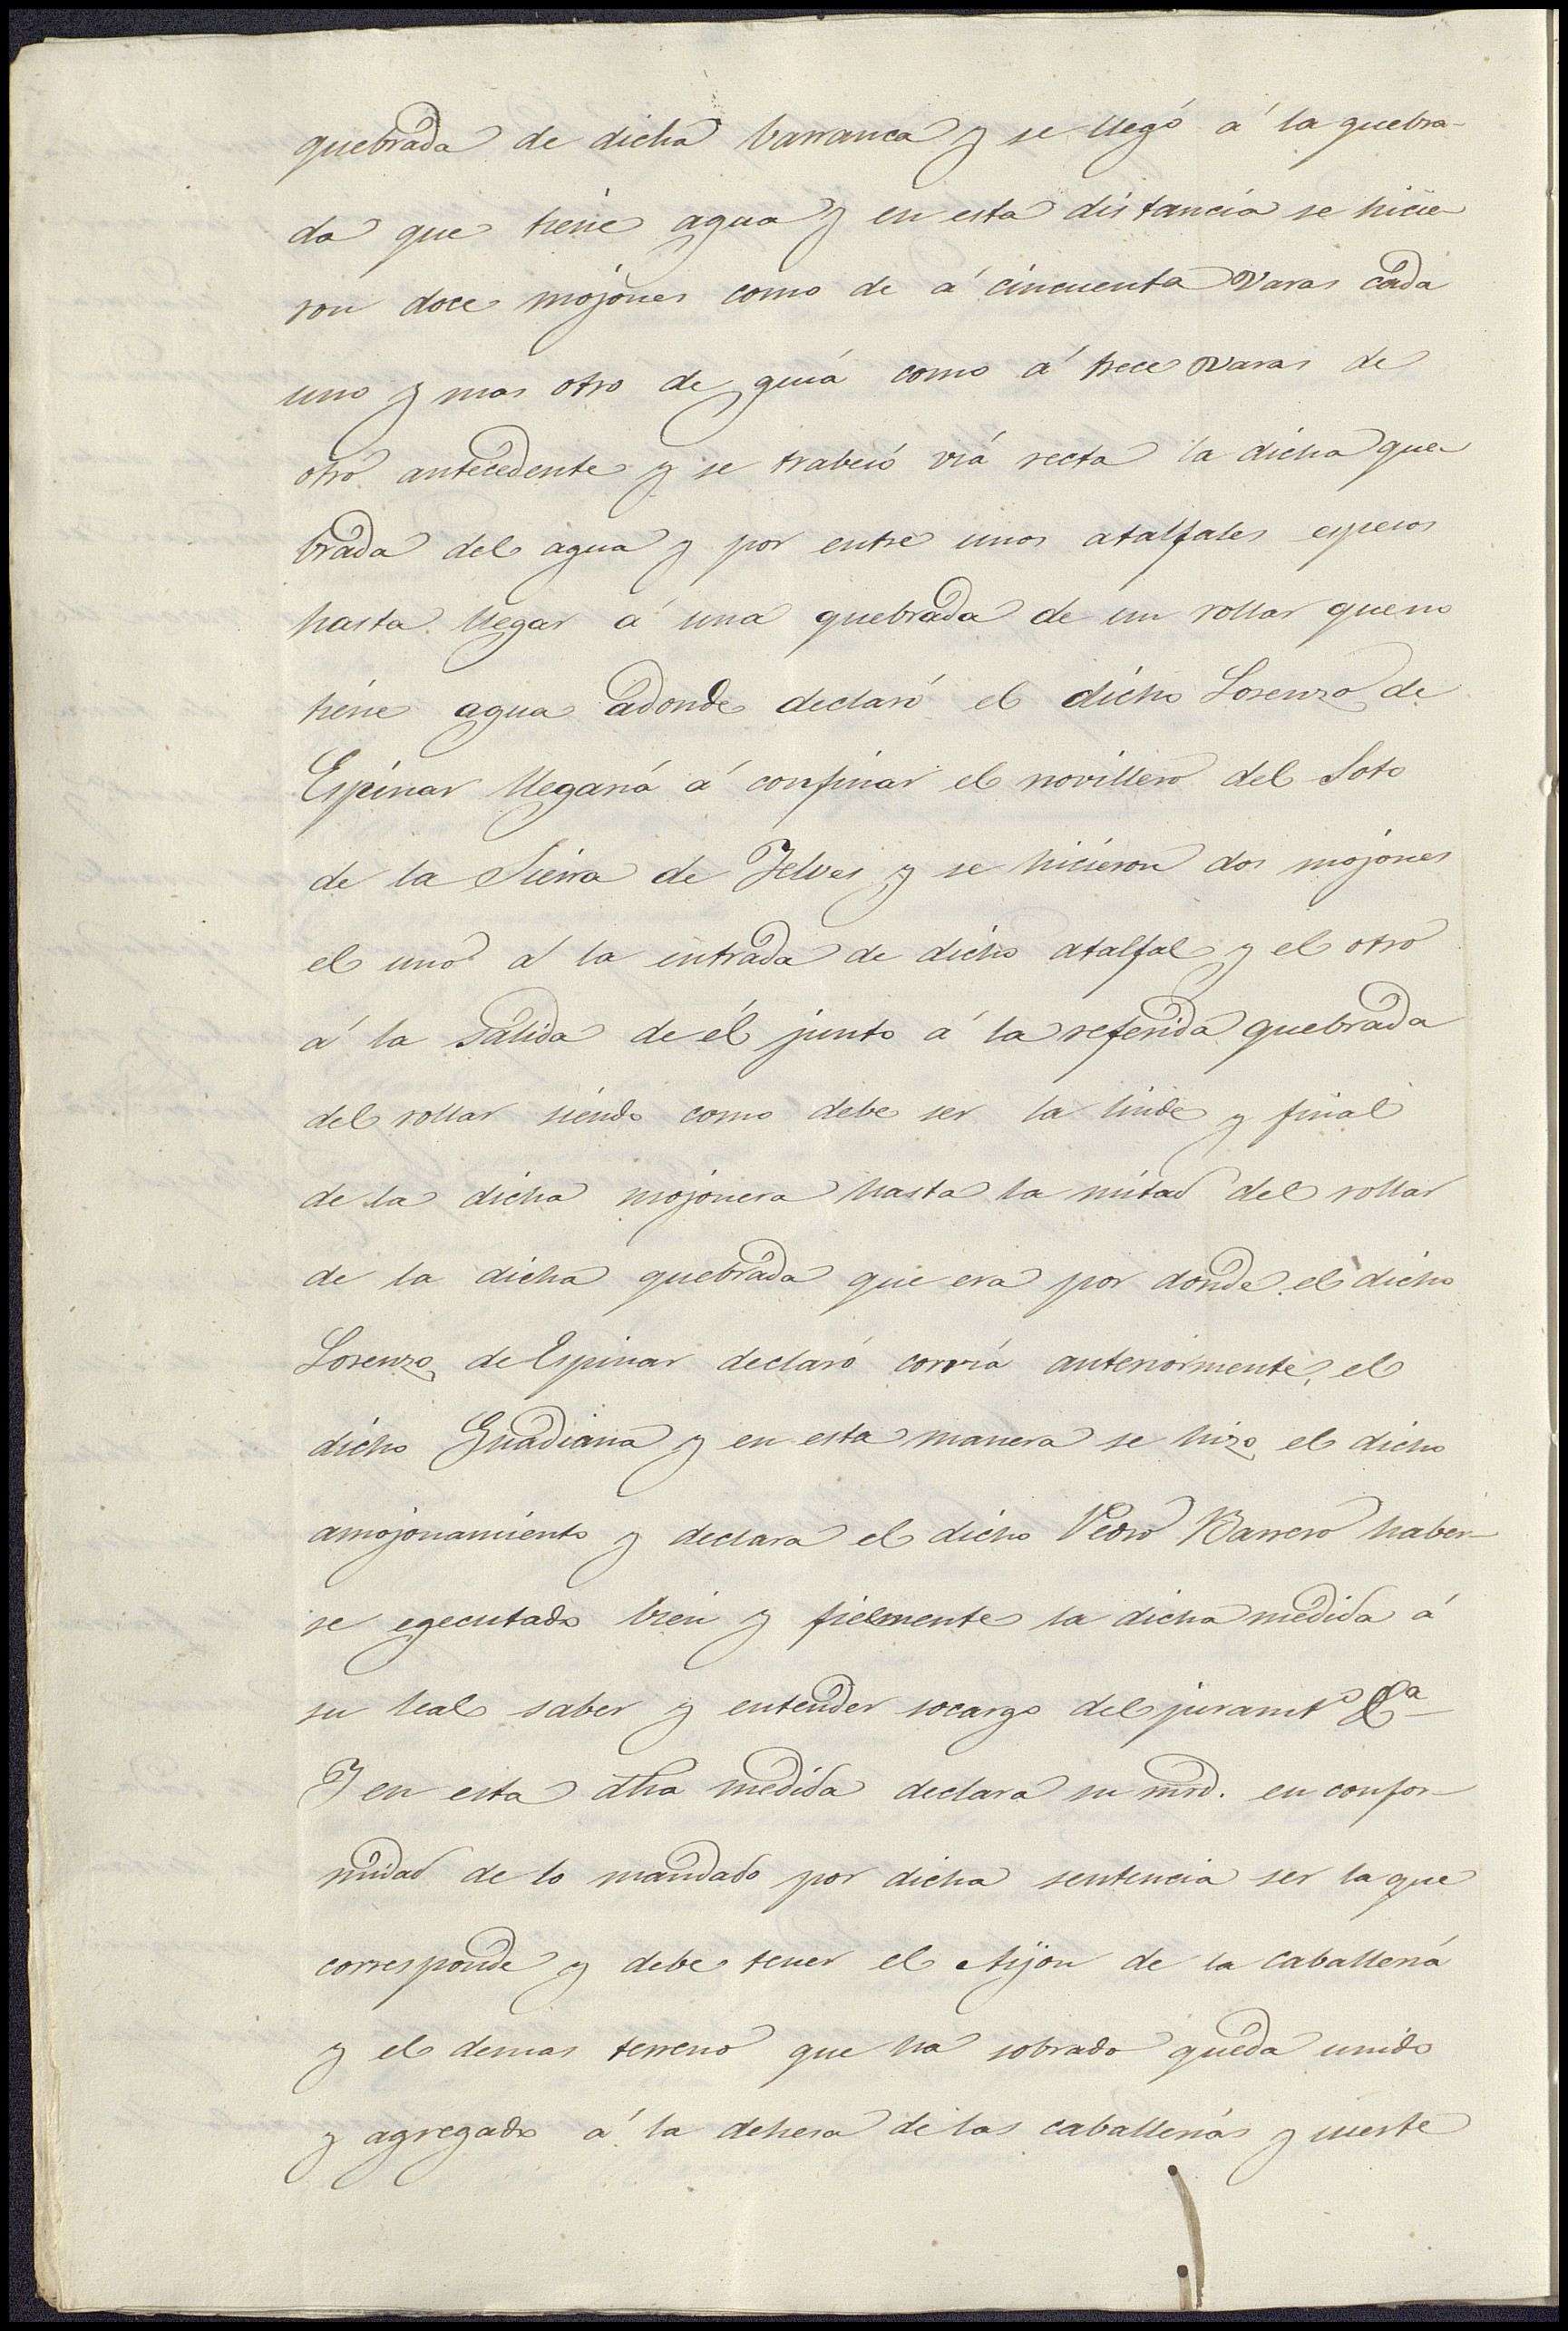 quebrada de dicha barranca y se llegó á la quebra-
da que tiene agua y en esta distancia se hicie-
ron doce mojones como de á cincuenta varas cada
uno y mas otro de guiá como á trece varas de
otro antecedente y se trabesó viá recta la dicha que-
brada del agua y por entre unos atalfales espesos
hasta llegar á una quebrada de un rollar que no
tiene agua adonde declaró el dicho Lorenzo de
Espinar llegará á confinar el novillero del Soto
de la Sierra de Jelves y se hicieron dos mojones
el uno á la entrada de dicho atalfal y el otro
á la salida de él junto á la referida quebrada
del rollar siendo como debe ser la linde y final
de la dicha mojonera hasta la mitad del rollar
de la dicha quebrada que era por donde el dicho
Lorenzo de Espinar declaró corriá anteriormente el
dicho Guadiana y en esta manera se hizo el dicho
amojonamiento y declara el dicho Pedro Barrero haber-
se egecutado bien y fielmente la dicha medida á
su leal saber y entender socargo del juramto &a
Y en esta dha medida declara su mrd. en confor-
midad de lo mandado por dicha sentencia ser la que
corresponde y debe tener el Aijon de la caballeriá
y el demas terreno que ha sobrado queda unido
y agregado á la dehesa de las caballeriás y